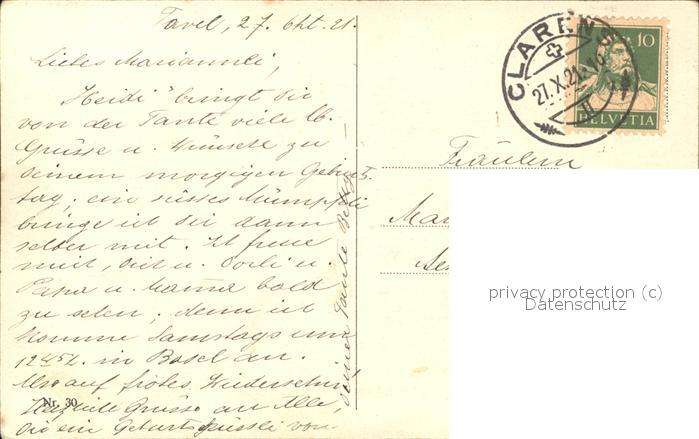 Tavel, 27. Okt. 21.
Liebes Mariannli,
"Heidi" bringt dir
von der Tante viele lb.
Grüsse u. Wünsche zu
deinem morgigen Geburts-
tag; ein süsses Mümpfeli
bringe ich dir dann
selber mit. Ich freue
mich, dich u. Dorli u.
Papa u. Mama bald
zu sehen; denn ich
komme Samstags um
12 in Basel an.
Also auf frohes Wiedersehn!
Herzliche Grüsse an Alle,
dir ein Geburtstags von
deiner Tante
Nr. 30
CLARENS
27.X.21
10
HELVETIA
Fräulein
Mar
privacy protection (c)
Datenschutz